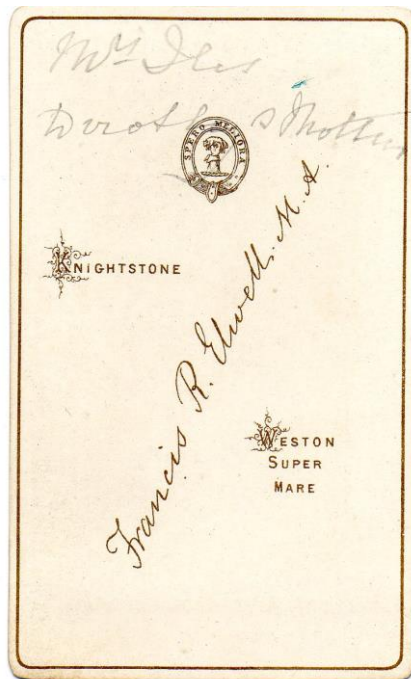 Mrs Iles
Dorothy's Mother
SPERO MELIORA
KNIGHTSTONE
Francis R. Elwell. M. A.
WESTON
SUPER
MARE